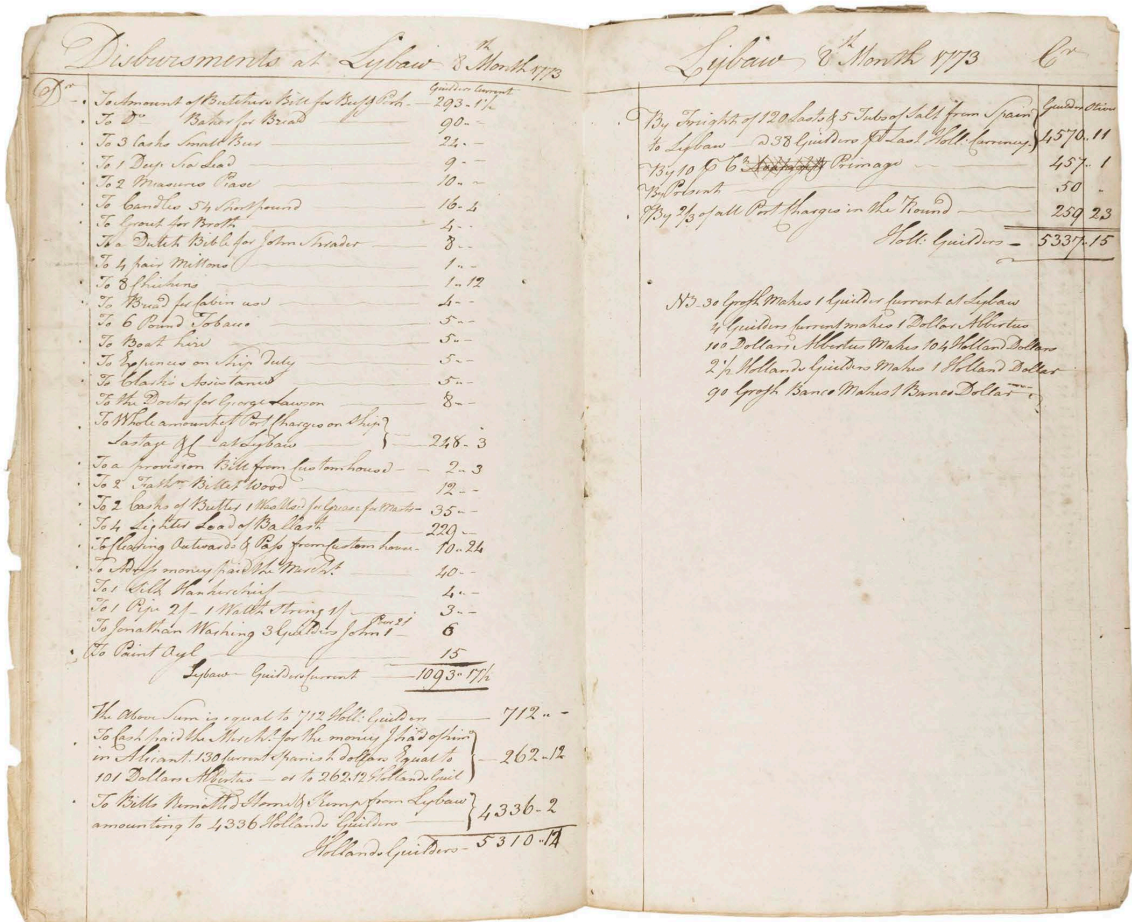 Disbursments at Lybaw 8th Month 1773
Dr
Guilders Current
To Amount of Butchers Bill for Beef & Pork 293 - 1½
To Do Baker for Bread 90 - -
To 3 Casks Small Beer 24 - -
To 1 Deep Sea Lead 9 - -
To 2 Measures Pease 10 - -
To Candles 54 Shortpound 16 - 4
To Grout for Broth 4 - -
To a Dutch Bible for John Shrader 8 - -
To 4 pair Mittons 1 - -
To 8 Chickens 1 - 12
To Bread for Cabin use 4 - -
To 6 Pound Tobacco 5 - -
To Boat hire 5 - -
To Expences on Ship duty 5 - -
To Clarks Assistance 5 - -
To the Doctor for George Lawson 8 - -
To Whole amount of Port Charges on Ship
Lastage &C at Lybaw 248 - 3
To a provision Bill from Customhouse 2 - 3
To 2 Fathm Billet Wood 12 - -
To 2 Casks of Butter 1 for Grease for Masts 35 - -
To 4 Lighter Load of Ballast 229 -
To Clearing Outwards & Pass from Custom house 10 - 24
To money paid the Mercht 40 - -
To 1 Silk Hankerchief 4 - -
To 1 Pipe 2/- 1 Watch String 1/ 3 - -
To Jonathan Washing 3 Guilders John 1 - 6
To Paint Oyl 15
Lybaw Guilders Current 1093 - 17½
The Above Sum is equal to 712 Holl: Guilders 712 - -
To Cash paid the Mercht for the money I had of him
in Alicant 130 Current Spanish dollars Equal to
101 Dollars Albertus - or to 262.12 Hollands Guil 262 - 12
To Bills Remitted Home & Kemp from Lybaw
amounting to 4336 Hollands Guilders 4336 - 2
Hollands Guilders - 5310 - 14
Lybaw 8th Month 1773 Cr
Guilders Stivr
By Freight of 120 Lasts & 5 Tubs of Salt from Spain
to Lybaw a 38 Guilders Pr Last Holl: Currency 4570 - 11
By 10 P Ct Primage 457 - 1
By Present 50 -
By 2/3 of all Port Charges in the Round 259 23
Holl: Guilders - 5337 - 15
NB 30 Grosh Makes 1 Guilder Current at Lybaw
4 Guilders Current makes 1 Dollar Albertus
100 Dollars Albertus Makes 104 Holland Dollars
2½ Hollands Guilders Makes 1 Holland Dollar
90 Grosh Banco Makes 1 Banco Dollar